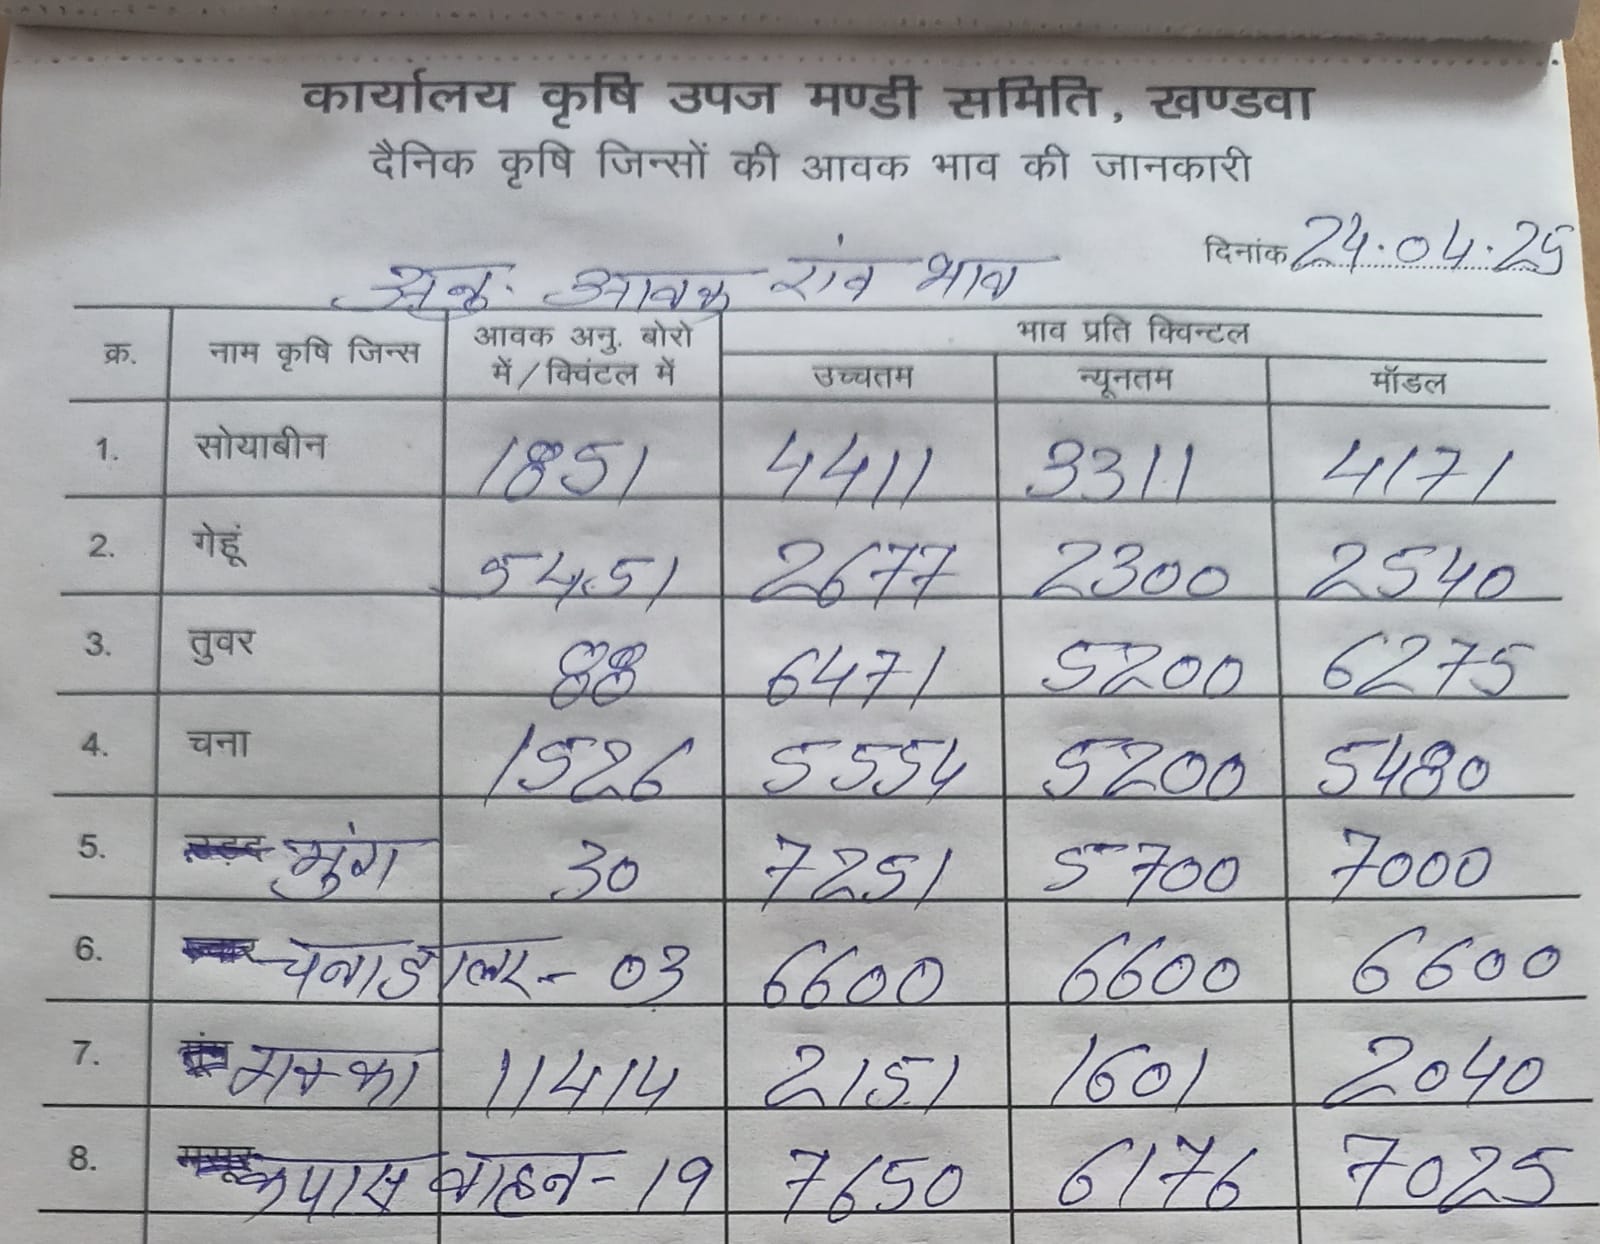 कार्यालय कृषि उपज मण्डी समिति, खण्डवा
दैनिक कृषि जिन्सों की आवक भाव की जानकारी
दिनांक 24.04.25
अनु. आवक एंव भाव
क्र. नाम कृषि जिन्स आवक अनु. बोरो में/क्विंटल में भाव प्रति क्विन्टल
उच्चतम न्यूनतम मॉडल
1. सोयाबीन 1851 4411 3311 4171
2. गेहूं 5451 2677 2300 2540
3. तुवर 88 6471 5200 6275
4. चना 1526 5554 5200 5480
5. मुंग 30 7251 5700 7000
6. चनाडालर - 03 6600 6600 6600
7. मक्का 11414 2151 1601 2040
8. कपास वाहन - 19 7650 6176 7025